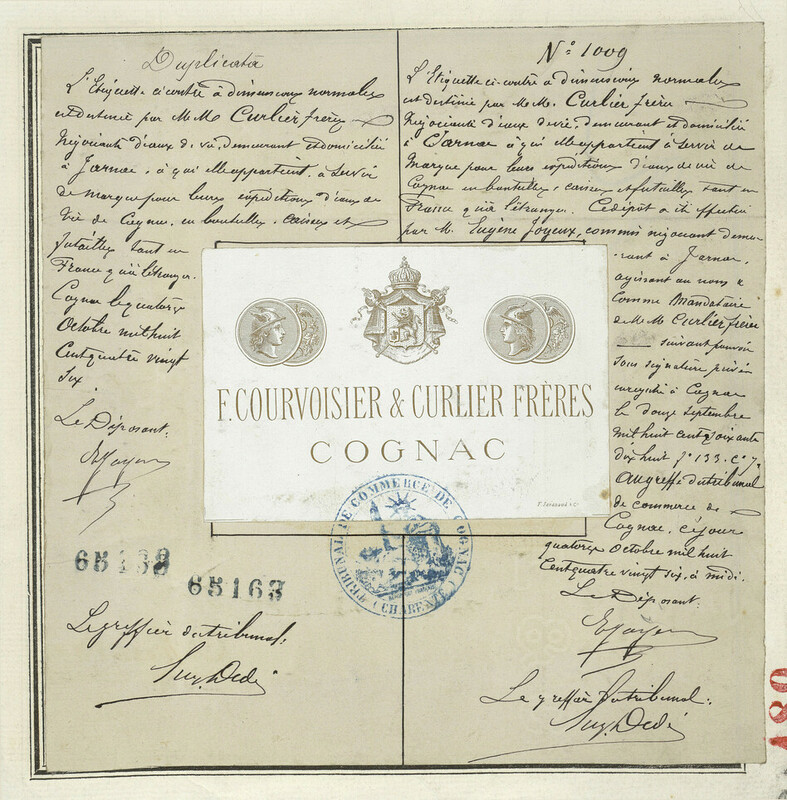 Duplicata
L'Etiquette ci contre à dimensions normales
est destinée par M.M. Curlier frères
Négociants d'eaux de vie, demeurant et domiciliés
à Jarnac, à qui elle appartient, à servir
de marque pour leurs expéditions d'eaux de
vie de Cognac, en bouteilles, caisses et
futailles tant en
France qu'à l'étranger.
Cognac le quatorze
Octobre mil huit
Cent quatre vingt
six.
Le Déposant.
65132
65163
Le greffier du tribunal.
N° 1009
L'Etiquette ci-contre à dimensions normales
est destinée par M.M. Curlier frères
Négociants d'eaux de vie, demeurant et domiciliés
à Jarnac à qui elle appartient à servir de
Marque pour leurs expéditions d'eaux de vie de
Cognac en bouteilles, caisses et futailles tant en
France qu'à l'étranger. Ce dépôt a été effectué
par M. Eugène Joyeux, commis négociant demeu
rant à Jarnac,
agissant au nom &
Comme Mandataire
de M.M. Curlier frères
suivant pouvoir
sous signature privée
enregistré à Cognac
le douze septembre
mil huit cent soixante
dix huit f° 133. c. 7.
Au greffe du tribunal
de commerce de
Cognac, ce jour
quatorze Octobre mil huit
Cent quatre vingt six, à midi.
Le Déposant.
Le greffier du tribunal.
F. COURVOISIER & CURLIER FRÈRES
COGNAC
TRIBUNAL DE COMMERCE DE COGNAC
(CHARENTE)